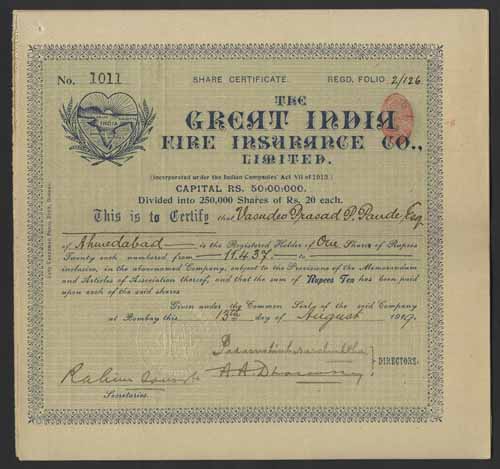 No. 1011 SHARE CERTIFICATE. REGD. FOLIO 2/126
INDIA
THE
GREAT INDIA
FIRE INSURANCE CO.,
LIMITED.
(Incorporated under the Indian Companies' Act VII of 1913.)
CAPITAL RS. 50,00,000.
Divided into 250,000 Shares of Rs. 20 each.
This is to Certify that Vasudeo Prasad P. Pande, Esq
of Ahmedabad is the Registered Holder of One Share of Rupees
Twenty each numbered from 11437 to
inclusive, in the abovenamed Company, subject to the Provisions of the Memorandum
and Articles of Association thereof, and that the sum of Rupees Ten has been paid
upon each of the said shares
Given under the Common Seal of the said Company
at Bombay this 13th day of August 1919.
DIRECTORS.
Secretaries.